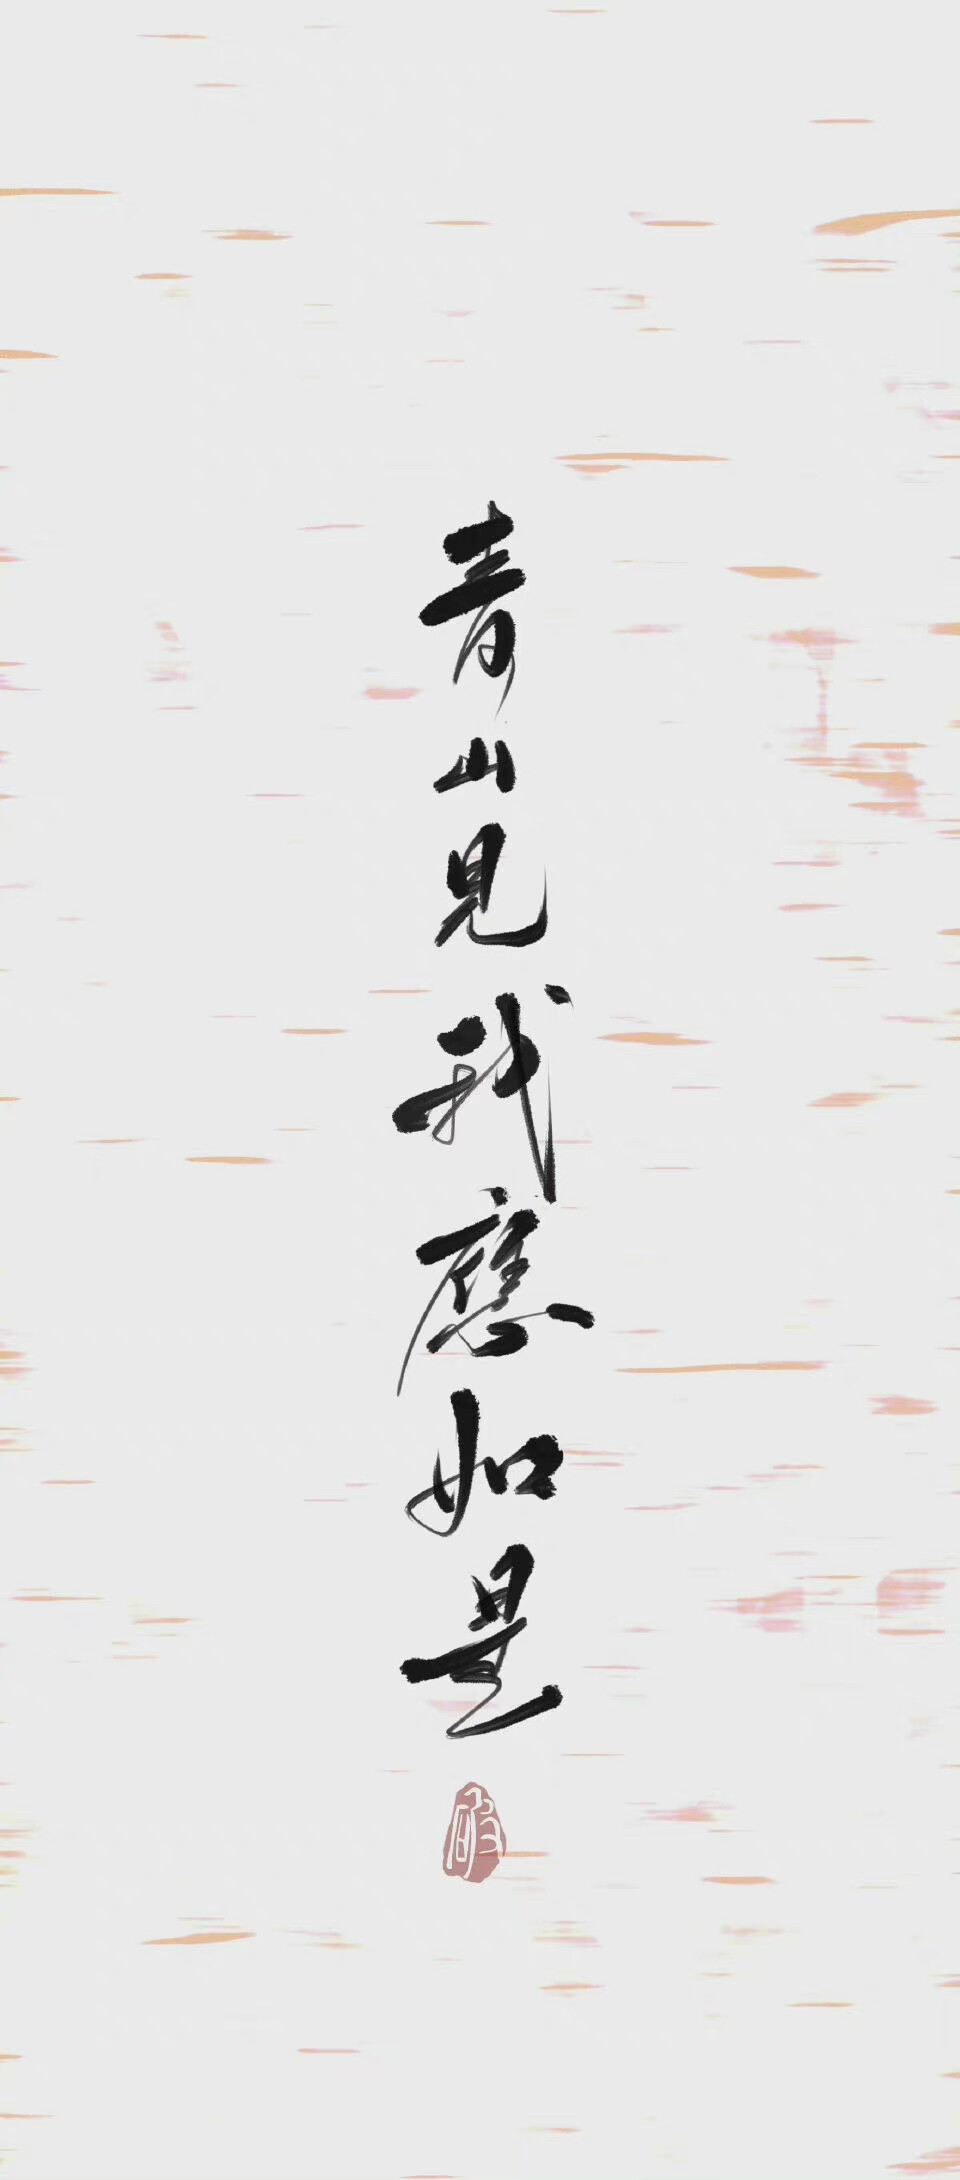 青山見我應如是